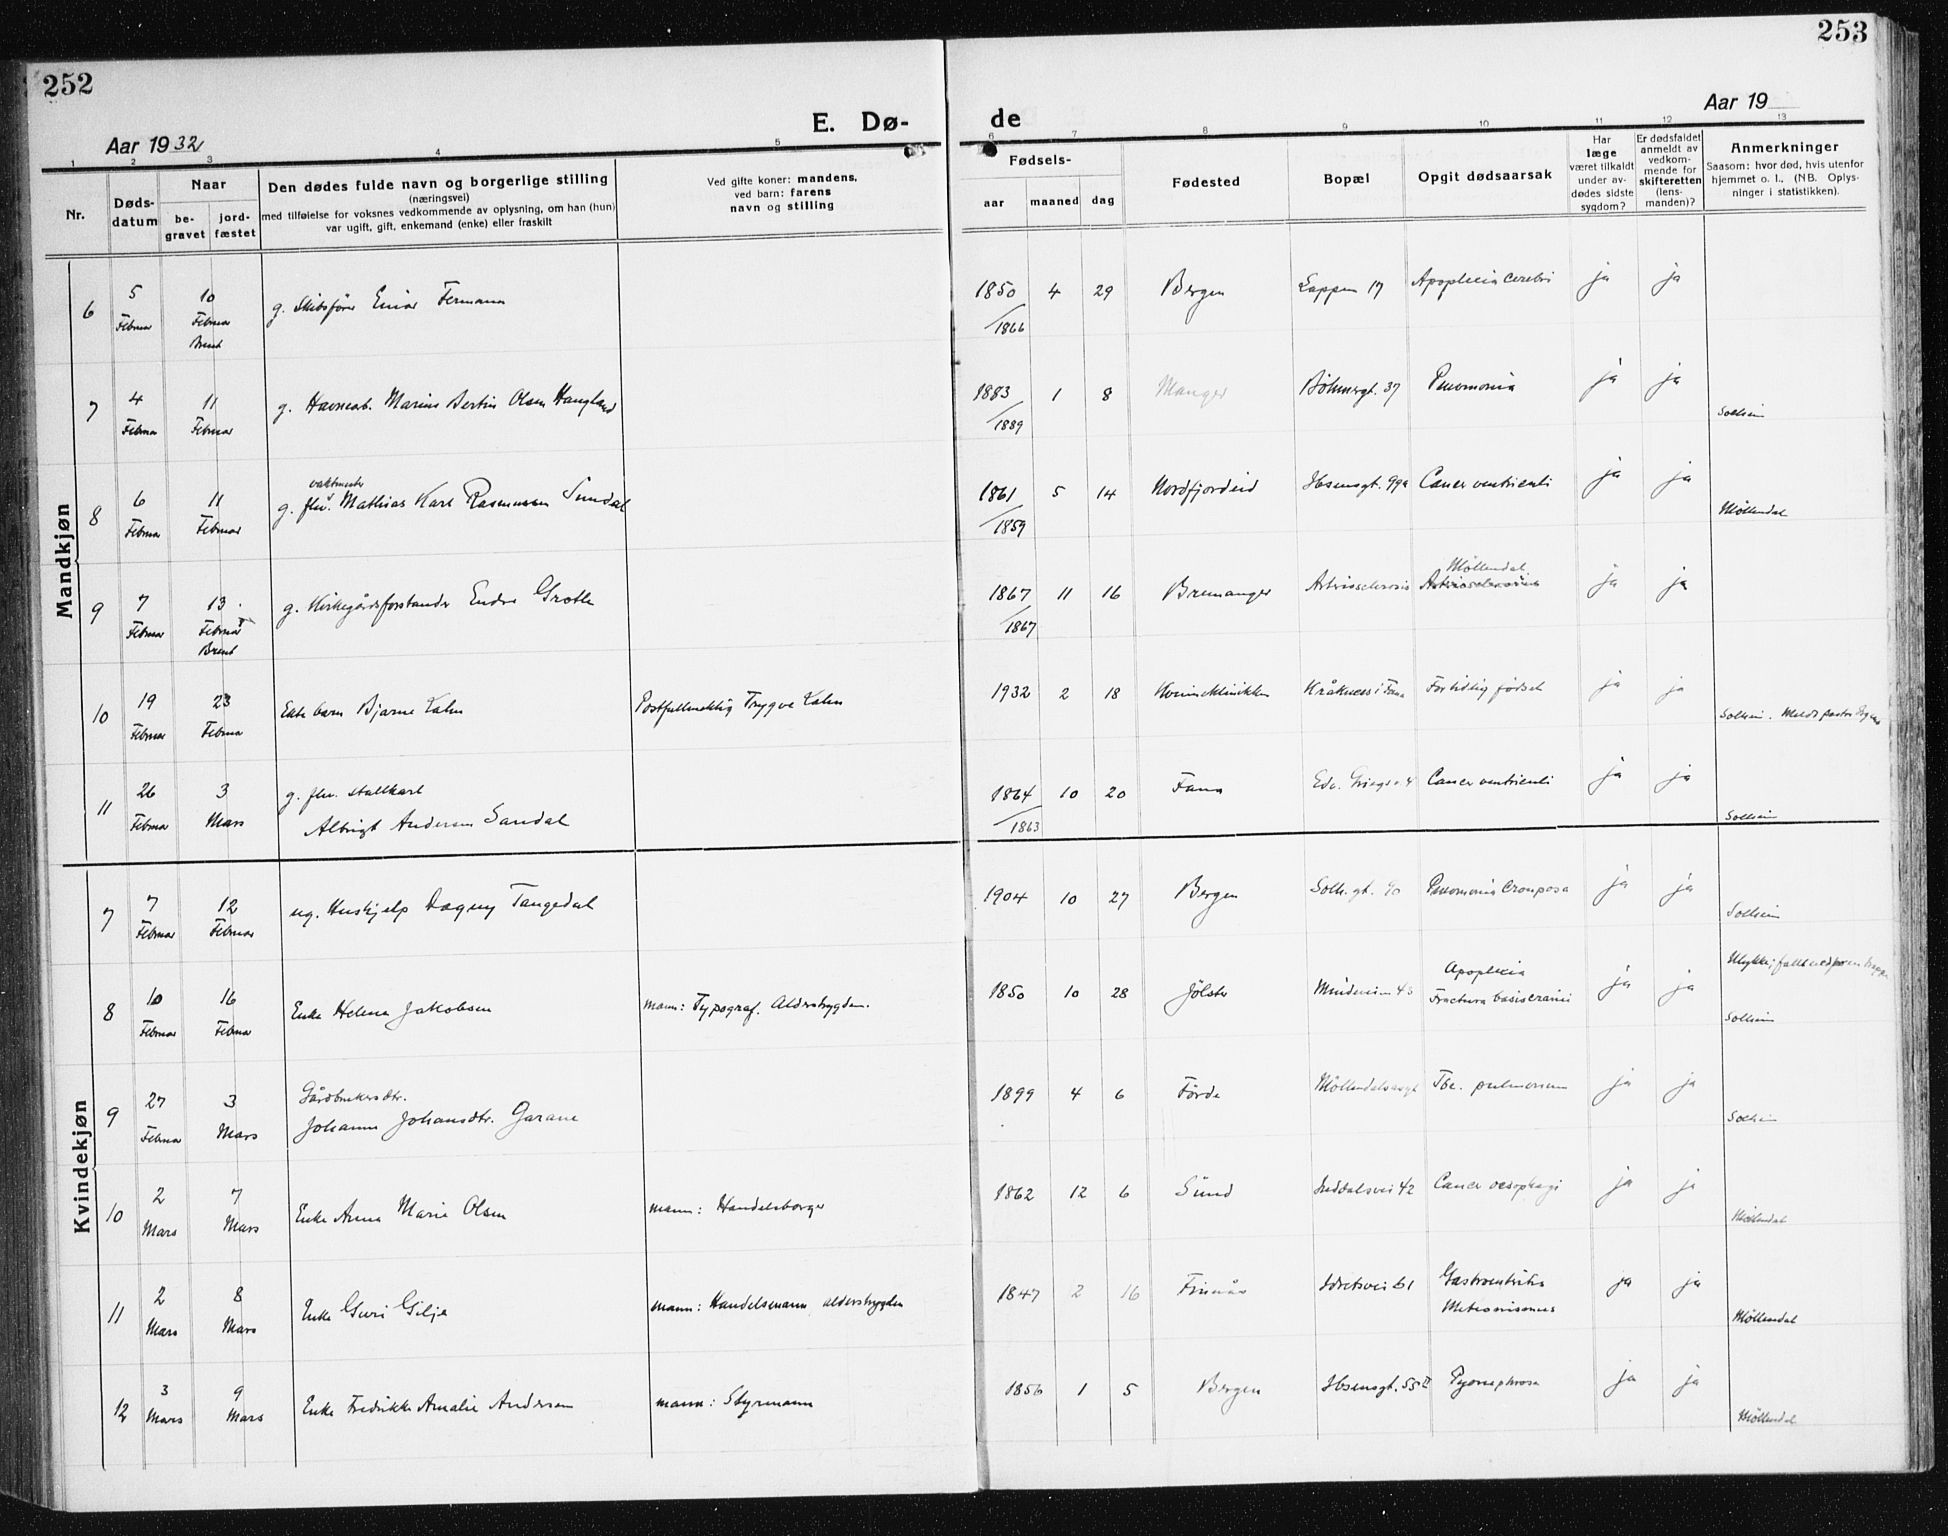 252
253
Aar 1932
E. Dø-
de
Aar 19
1 2 3 4 5 6 7 8 9 10 11 12 13
Nr.
Døds-
datum
Naar
be-
gravet
jord-
fæstet
Den dødes fulde navn og borgerlige stilling
(næringsvei)
med tilføielse for voksnes vedkommende av oplysning, om han (hun)
var ugift, gift, enkemand (enke) eller fraskilt
Ved gifte koner: mandens,
ved barn: farens
navn og stilling
Fødsels-
aar maaned dag
Fødested
Bopæl
Opgit dødsaarsak
Har
læge
været tilkaldt
under av-
dødes sidste
sygdom?
Er dødsfaldet
anmeldt av
vedkom-
mende for
skifteretten
(lens-
manden)?
Anmerkninger
Saasom: hvor død, hvis utenfor
hjemmet o. l., (NB. Oplys-
ninger i statistikken).
Mandkjøn
6 5 Februar 10 Februar Brent g. Skibsfører Einar Fermann 1850 4 29 /1866 Bergen Lappen 17 Apoplexia cerebri ja ja
7 4 Februar 11 Februar g. Havnearb. Marius Bertin Olsen Haugland 1883 1 8 /1889 Manger Bøhmergt. 37 Pneumonia ja ja Solheim
8 6 Februar 11 Februar g. fhv. vaktmester Mathias Karl Rasmussen Sundal 1861 5 14 /1859 Nordfjordeid Ibsensgt. 99a Cancer ventriculi ja ja Møllendal
9 7 Februar 13 Februar Brent g. Kirkegårdsforstander Endre Grotle 1867 11 16 /1867 Bremanger Arteriosclerosis Møllendal Arteriosclerosis ja ja
10 19 Februar 23 Februar Ekte barn Bjarne Lahn Postfullmektig Trygve Lahn 1932 2 18 Kvinneklinikken Kråkness i Fana For tidlig fødsel ja ja Solheim. Meldt pastor
11 26 Februar 3 Mars g. fhv. stallkarl
Albrigt Andersen Sandal 1864 10 20 /1863 Fana Edv. Griegsv. 4 Cancer ventriculi ja ja Solheim
Kvindekjøn
7 7 Februar 12 Februar ug. Hushjelp Dagny Tangedal 1904 10 27 Bergen Solh. gt. 90 Pneumonia crouposa ja ja Solheim
8 10 Februar 16 Februar Enke Helena Jakobsen mann: Typograf. Alderstrygden. 1850 10 28 Jølster Mindeveien 43 Apoplexia
Fractura basis cranii ja ja Ulykke; falt ned på en trapp
Solheim
9 27 Februar 3 Mars Gårdbrukersdtr.
Johanne Johansdtr. Garane 1899 4 6 Førde Møllendalsvegt Tbc. pulmonum ja ja Solheim
10 2 Mars 7 Mars Enke Anna Marie Olsen mann: Handelsborger 1862 12 6 Sund Inddalsvei 42 Cancer oesophagi ja ja Møllendal
11 2 Mars 8 Mars Enke Guri Gilje mann: Handelsmann alderstrygden 1847 2 16 Finnås Idretsvei 61 Gastroenteritis
Meteorismus ja ja Møllendal
12 3 Mars 9 Mars Enke Fredrikke Amalie Andersen mann: Styrmann 1856 1 5 Bergen Ibsensgt. 55 II Pyonephrose ja ja Møllendal